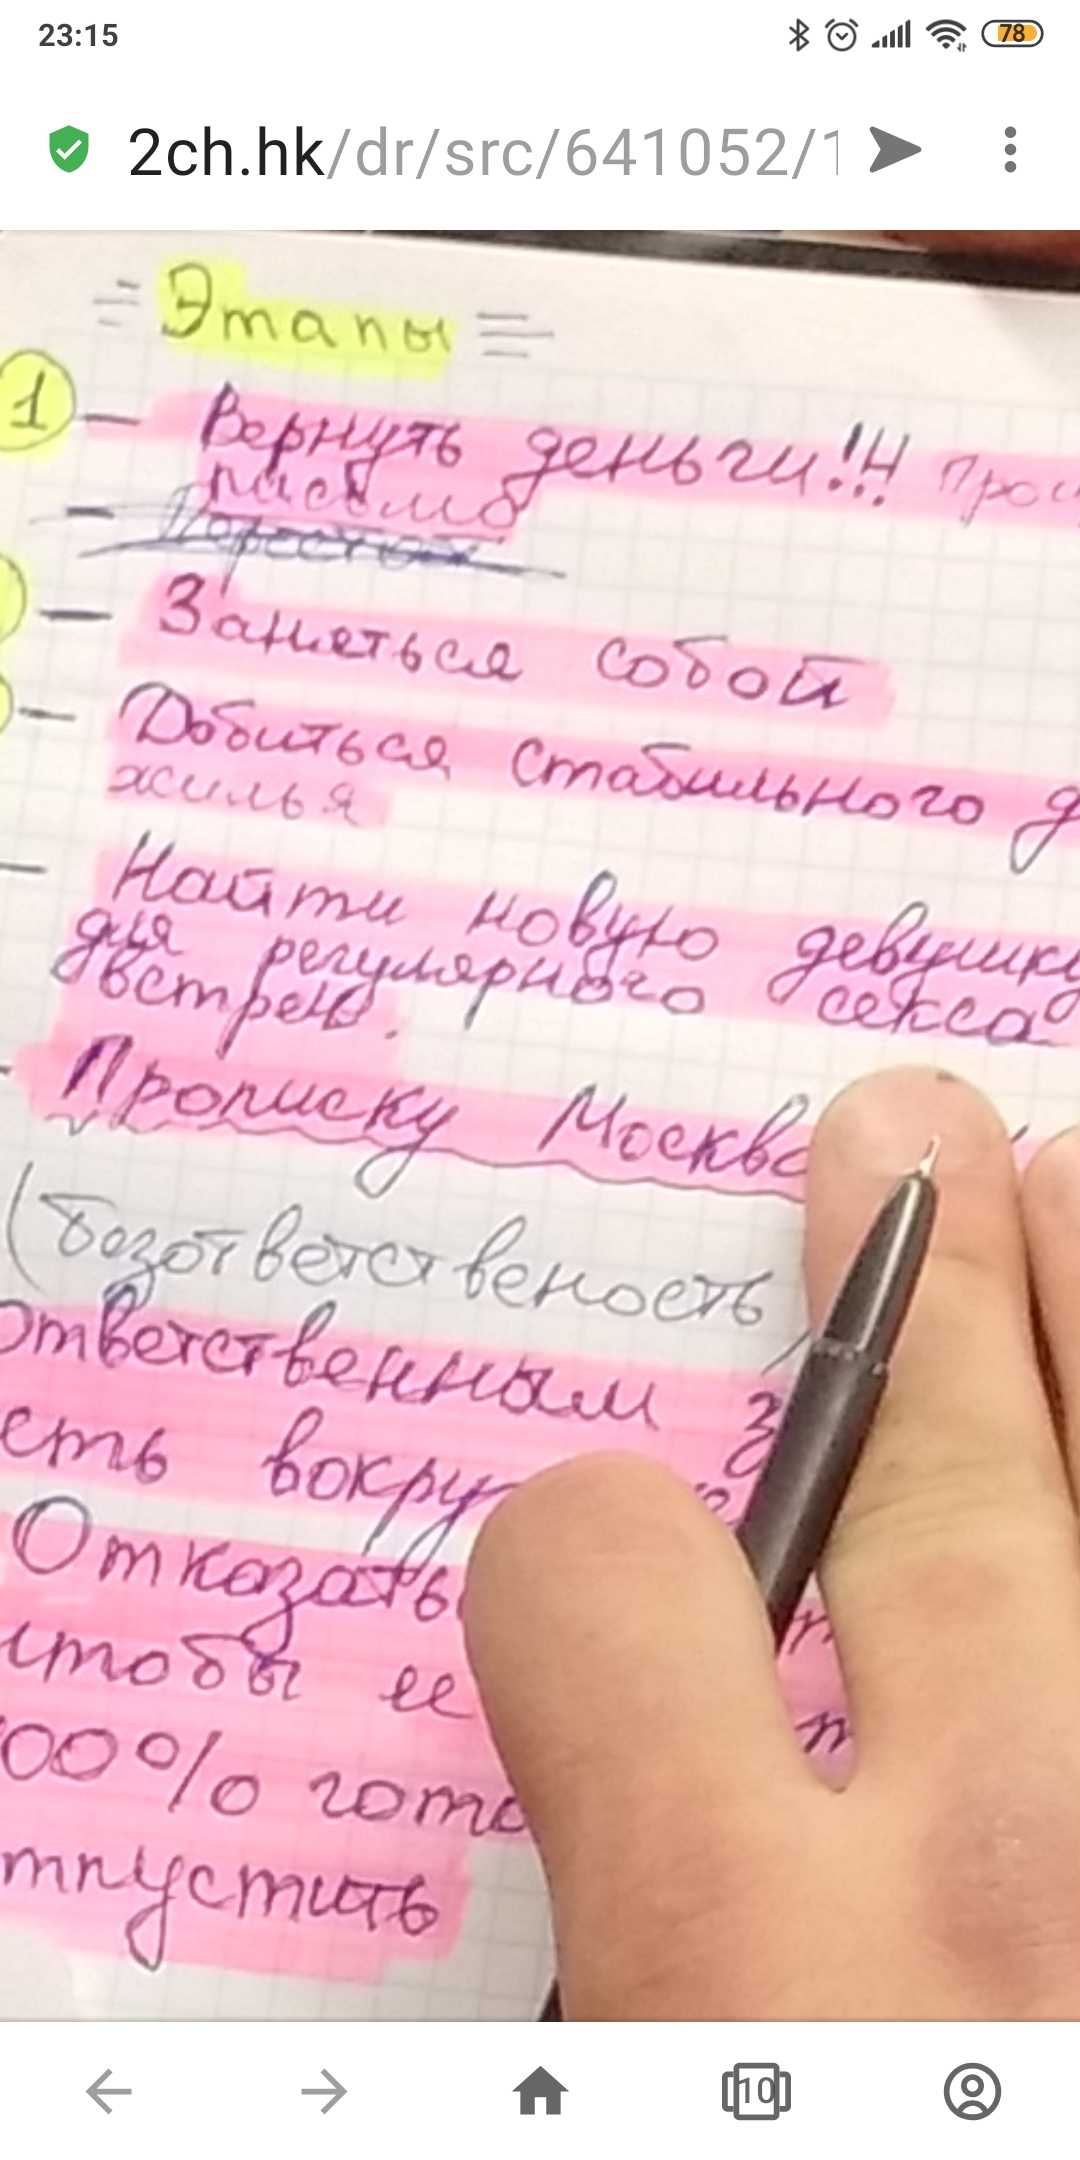 23:15
78
2ch.hk/dr/src/641052/1
= Этапы =
1 — Вернуть деньги!!!
— Заняться собой
— Добиться стабильного
жилья
— Найти новую девушку
для регулярного секса
встреч.
- Прописку Москва
(безответственость)
ответственным з
сть вокру
Отказать
чтобы ее
00% гото
тпустить
10